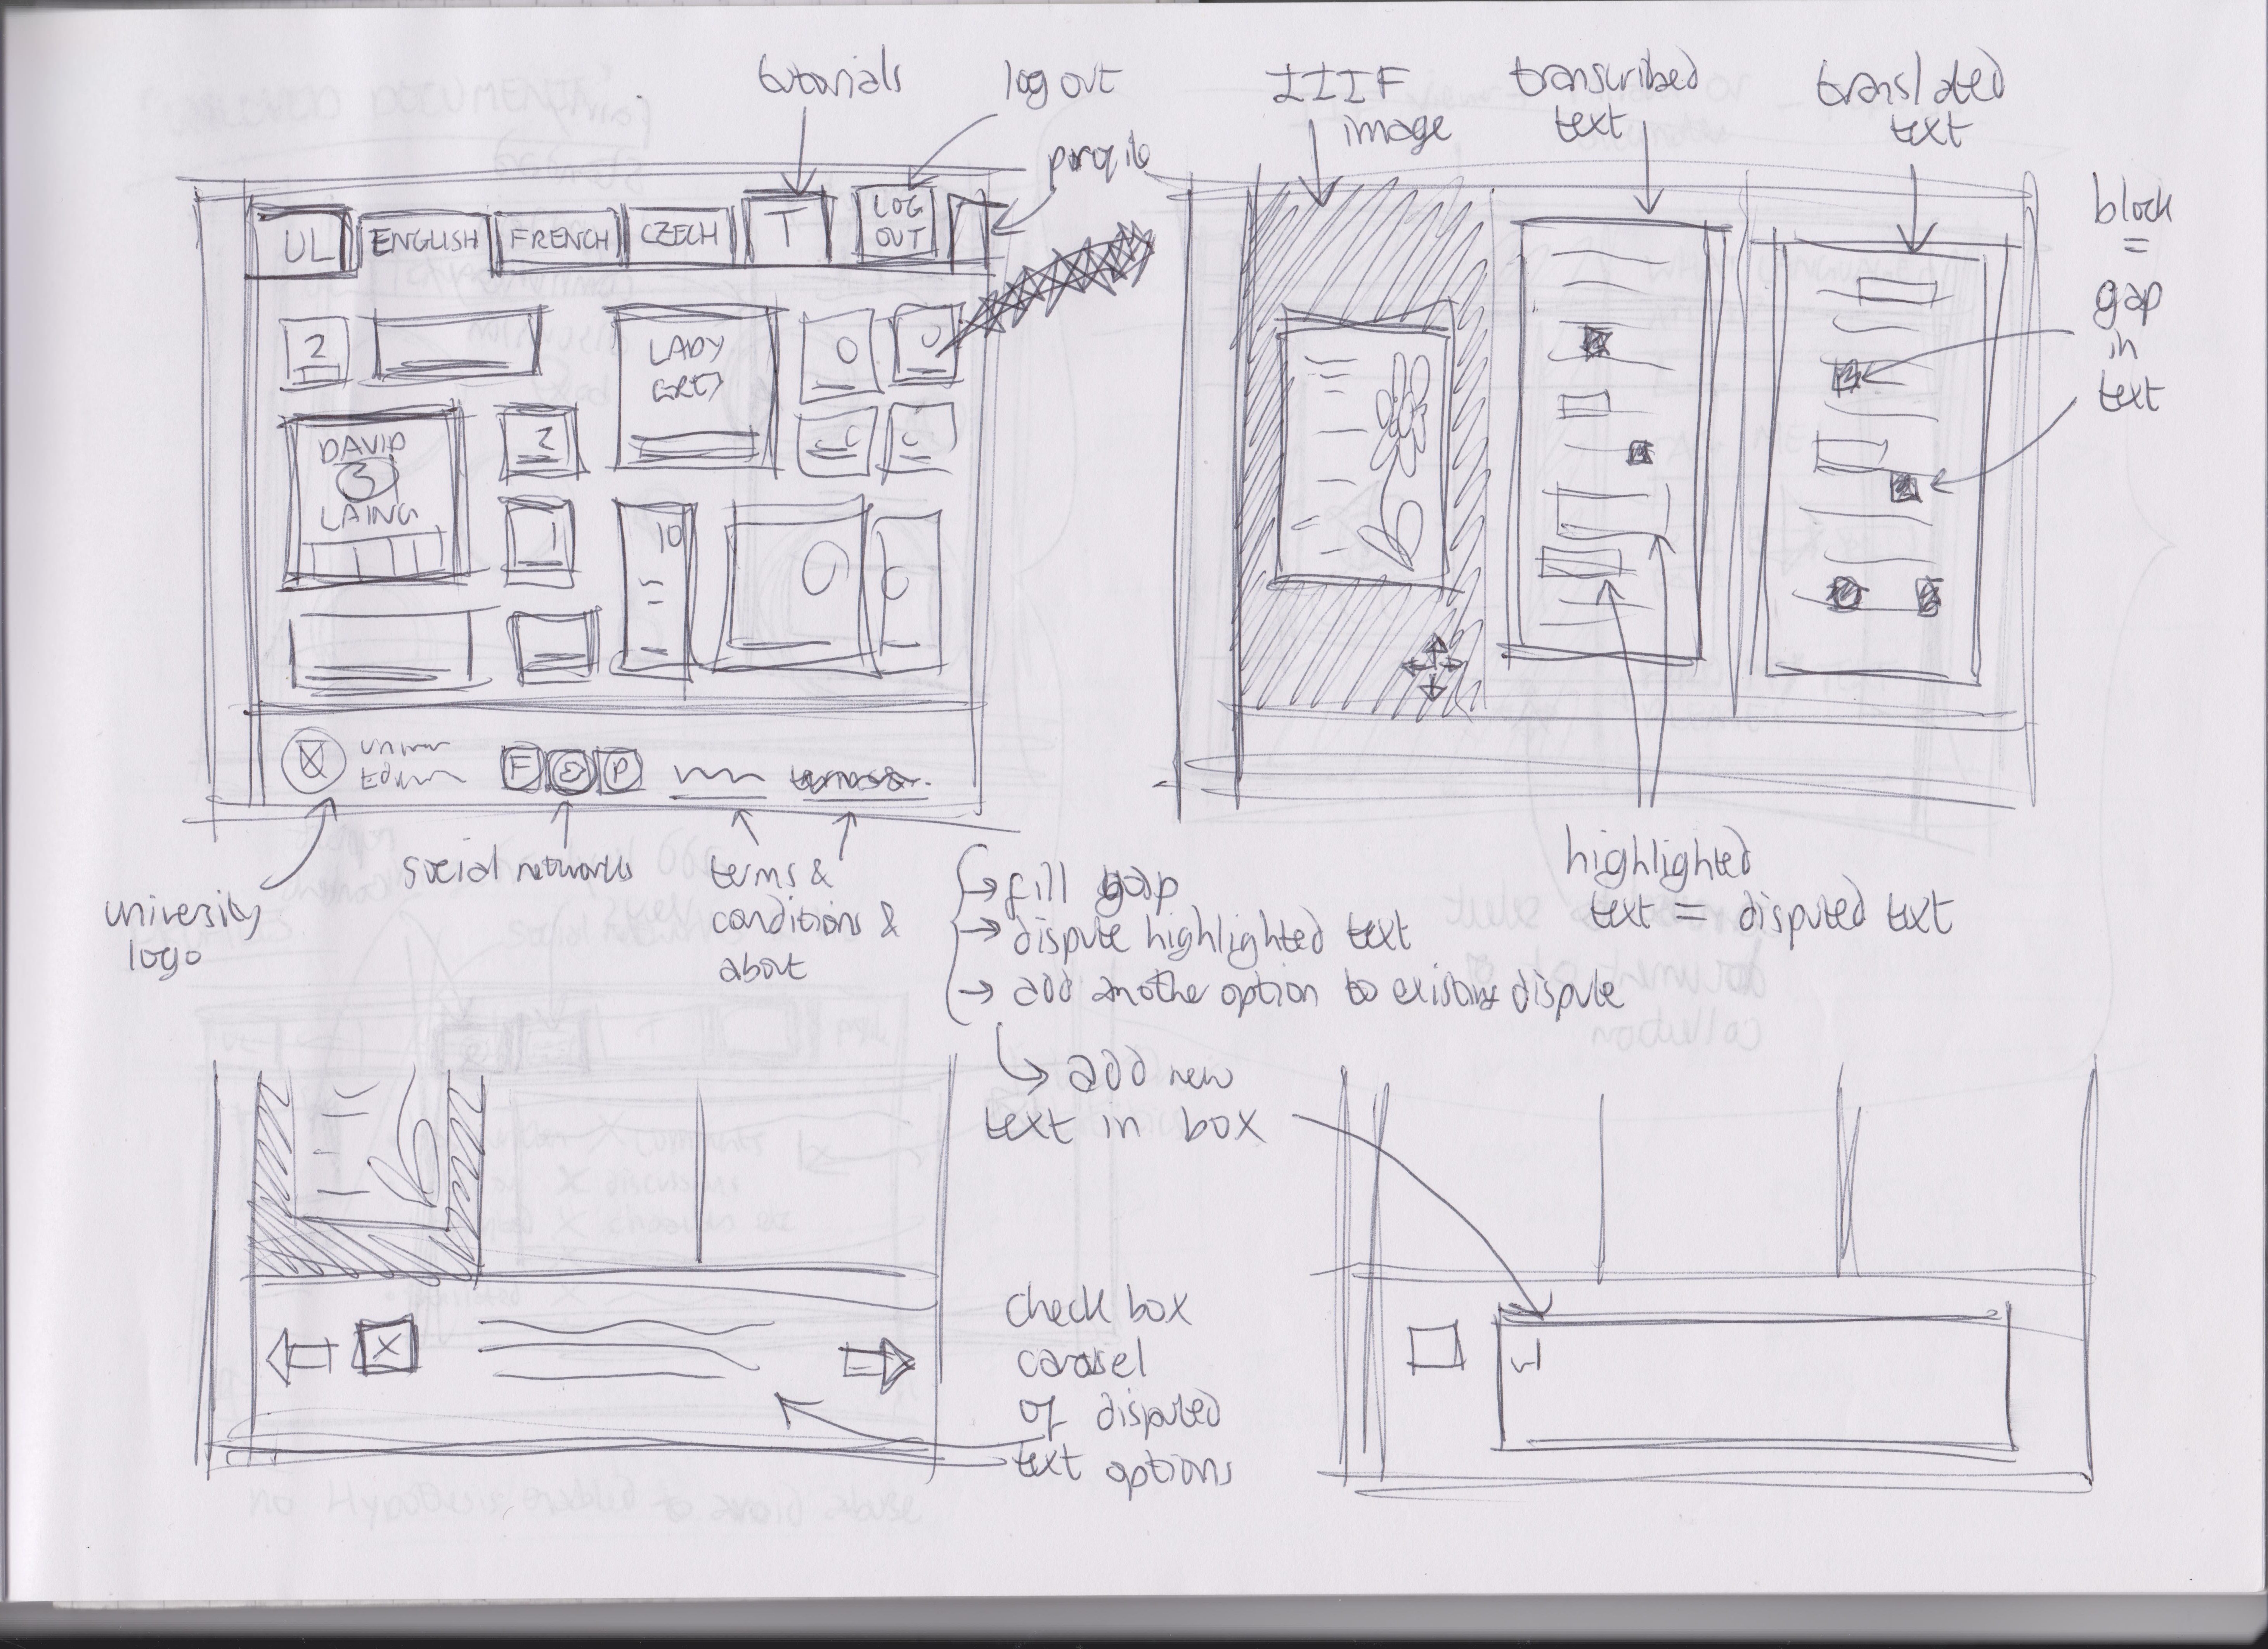 tutorials
log out
IIIF
image
transcribed
text
translated
text
UL
ENGLISH
FRENCH
CZECH
T
LOG
OUT
block
=
gap
in
text
2
LADY
GREY
0
0
DAVID
3
LAING
2
1
10
0
0
F
P
university
logo
social networks
terms &
conditions &
about
→ fill gap
→ dispute highlighted text
→ add another option to existing dispute
↳ add new
text in box
highlighted
text = disputed text
X
check box
of disputed
text options